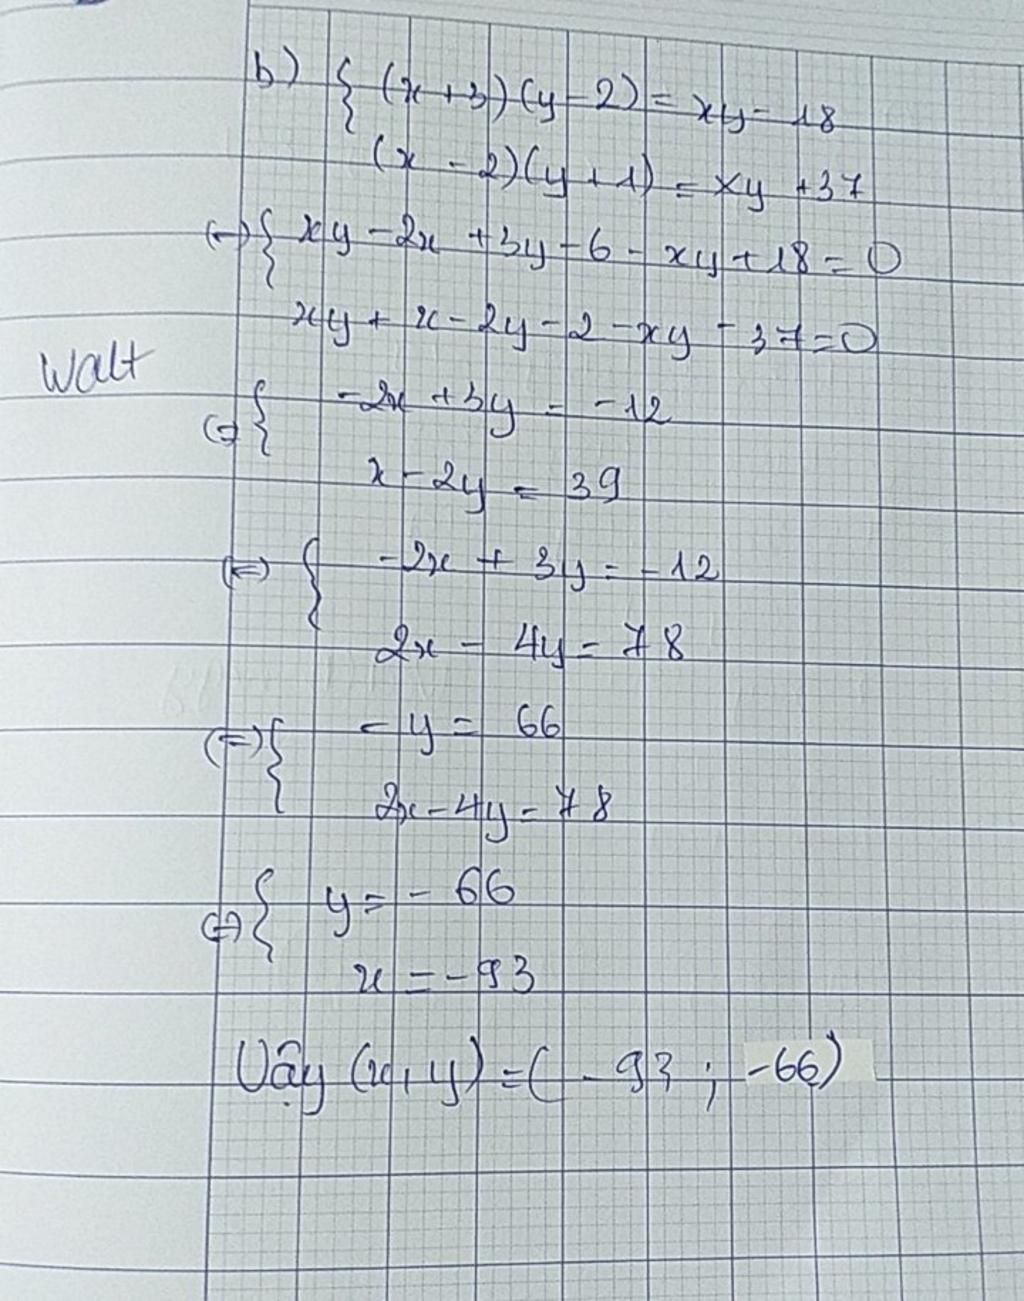 b) { (x + 3)(y - 2) = xy - 18
(x - 2)(y + 1) = xy + 37
(=) { xy - 2x + 3y - 6 - xy + 18 = 0
xy + x - 2y - 2 - xy - 37 = 0
Walt
(=) { -2x + 3y = -12
x - 2y = 39
(=) { -2x + 3y = -12
2x - 4y = 78
(=) { - y = 66
2x - 4y = 78
(=) { y = - 66
x = - 93
Vậy (x, y) = ( - 93 ; -66)